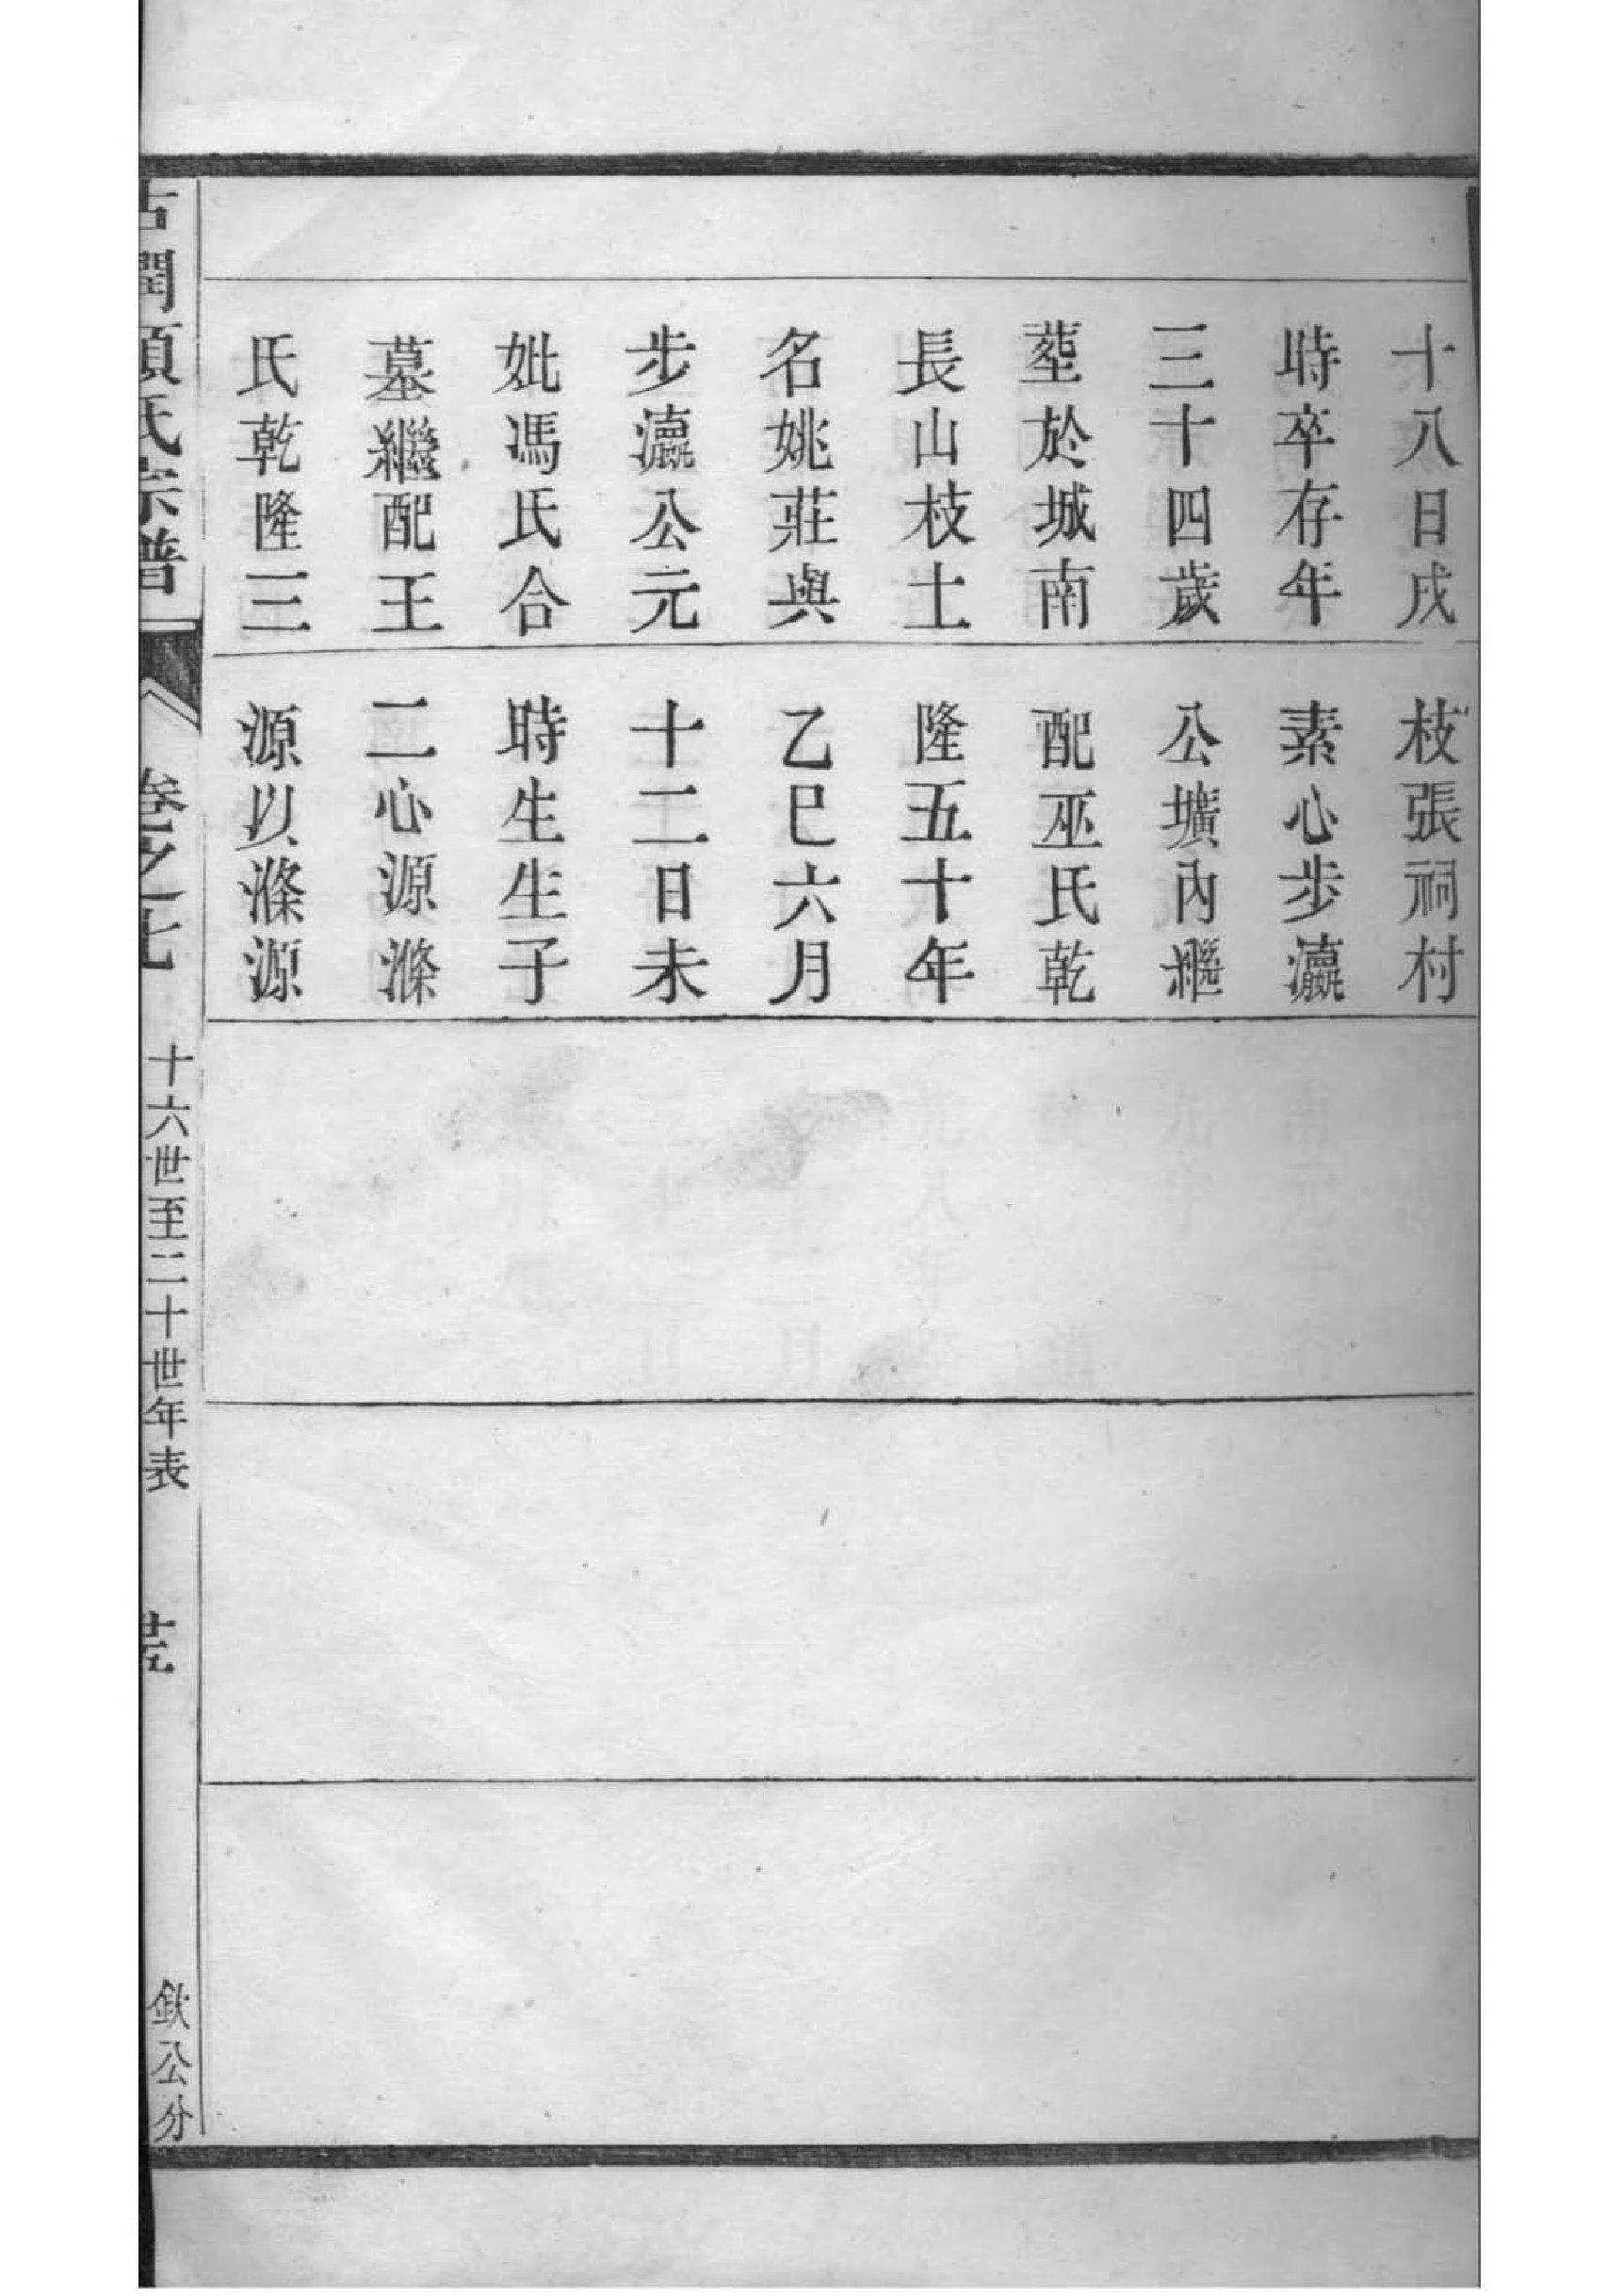 十八日戌
時卒存年
三十四歲
塟於城南
長山枝士
名姚莊與
步瀛公元
妣馮氏合
墓繼配王
氏乾隆三
枝張祠村
素心步瀛
公壙內繼
配巫氏乾
隆五十年
乙巳六月
十二日未
時生生子
二心源滌
源以滌源
古潤項氏宗譜
卷之七
十六世至二十世年表
欽公分